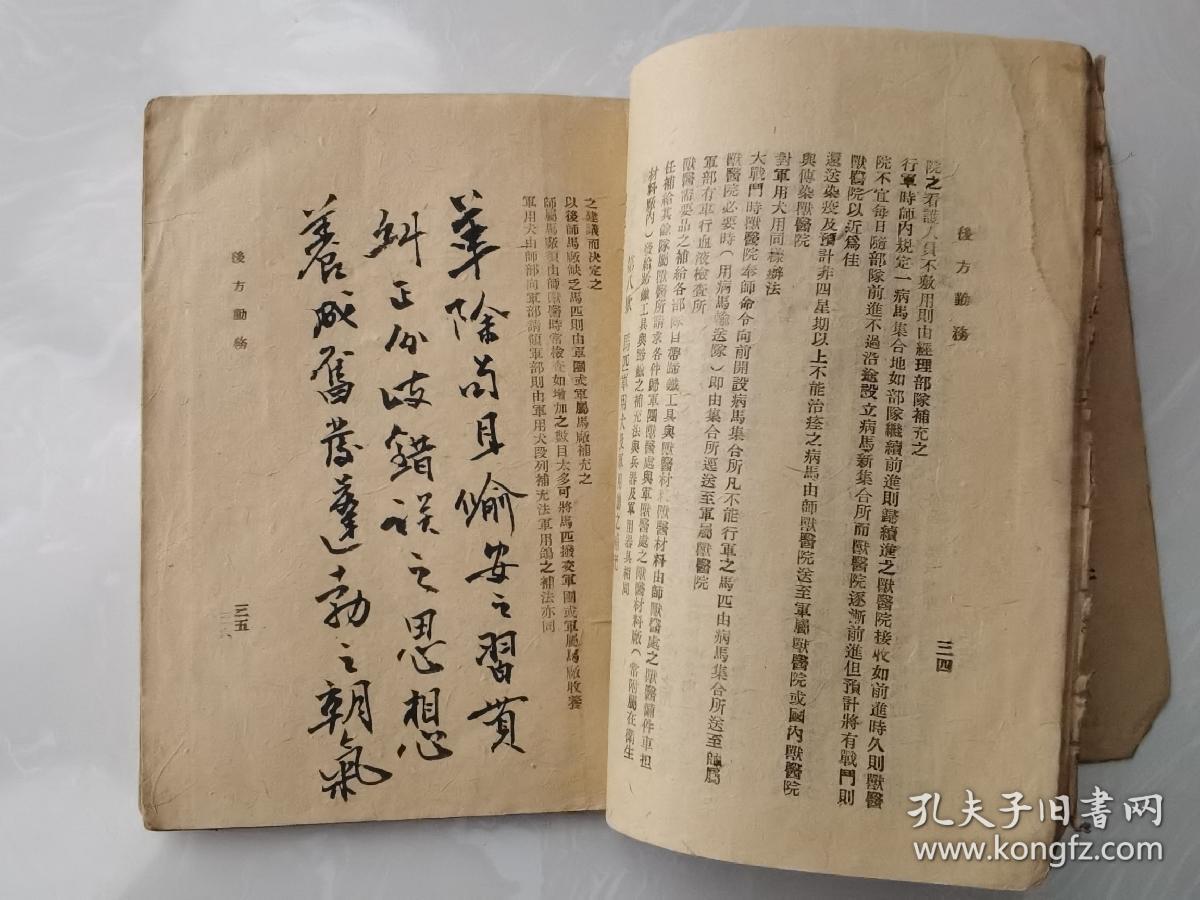 後方勤務
三四
院之看護人員不敷用則由經理部隊補充之
行軍時師內規定一病馬集合地如部隊繼續前進則歸續進之獸醫院接收如前進時久則獸醫
院不宜每日隨部隊前進不過沿途設立病馬新集合所而獸醫院逐漸前進但預計將有戰鬥則
獸醫院以近為佳
還送染疫及預計非四星期以上不能治痊之病馬由師獸醫院送至軍屬獸醫院或國內獸醫院
與傳染獸醫院
對軍用犬用同樣辦法
大戰鬥時獸醫院奉師命令向前開設病馬集合所凡不能行軍之馬匹由病馬集合所送至師屬
獸醫院必要時（用病馬輸送隊）即由集合所逕送至軍屬獸醫院
軍部有車行血液檢查所
獸醫需要品之補給各部隊自帶蹄鐵工具與獸醫材料獸醫材料由師獸醫處之獸醫備件車担
任補給其餘隊屬獸醫所請求各件歸軍團獸醫處與軍獸醫處之獸醫材料廠（常附屬在衛生
材料廠內）發給蹄鐵工具與蹄鐵之補充法與兵器及軍用器具相同
之建議而決定之
以後師馬廠缺乏馬匹則由軍團或軍屬馬廠補充之
師屬馬廠須由師獸醫時常檢查如增加之數目太多可將馬匹撥交軍團或軍屬馬廠收養
軍用犬由師部向軍部請領軍部則由軍用犬段列補充法軍用鴿之補法亦同
革除苟且偷安之習慣
糾正分歧錯誤之思想
養成奮發蓬勃之朝氣
後方勤務
三五
孔夫子旧书网
www.kongfz.com